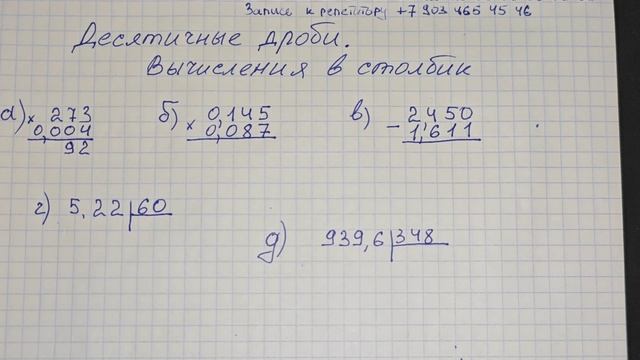 Запись к репетитору +7 903 465 45 46
Десятичные дроби.
Вычисления в столбик
а) × 273
0,004
92
б) × 0,145
0,087
в) - 2,450
1,611
г) 5,22 60
д) 939,6 348